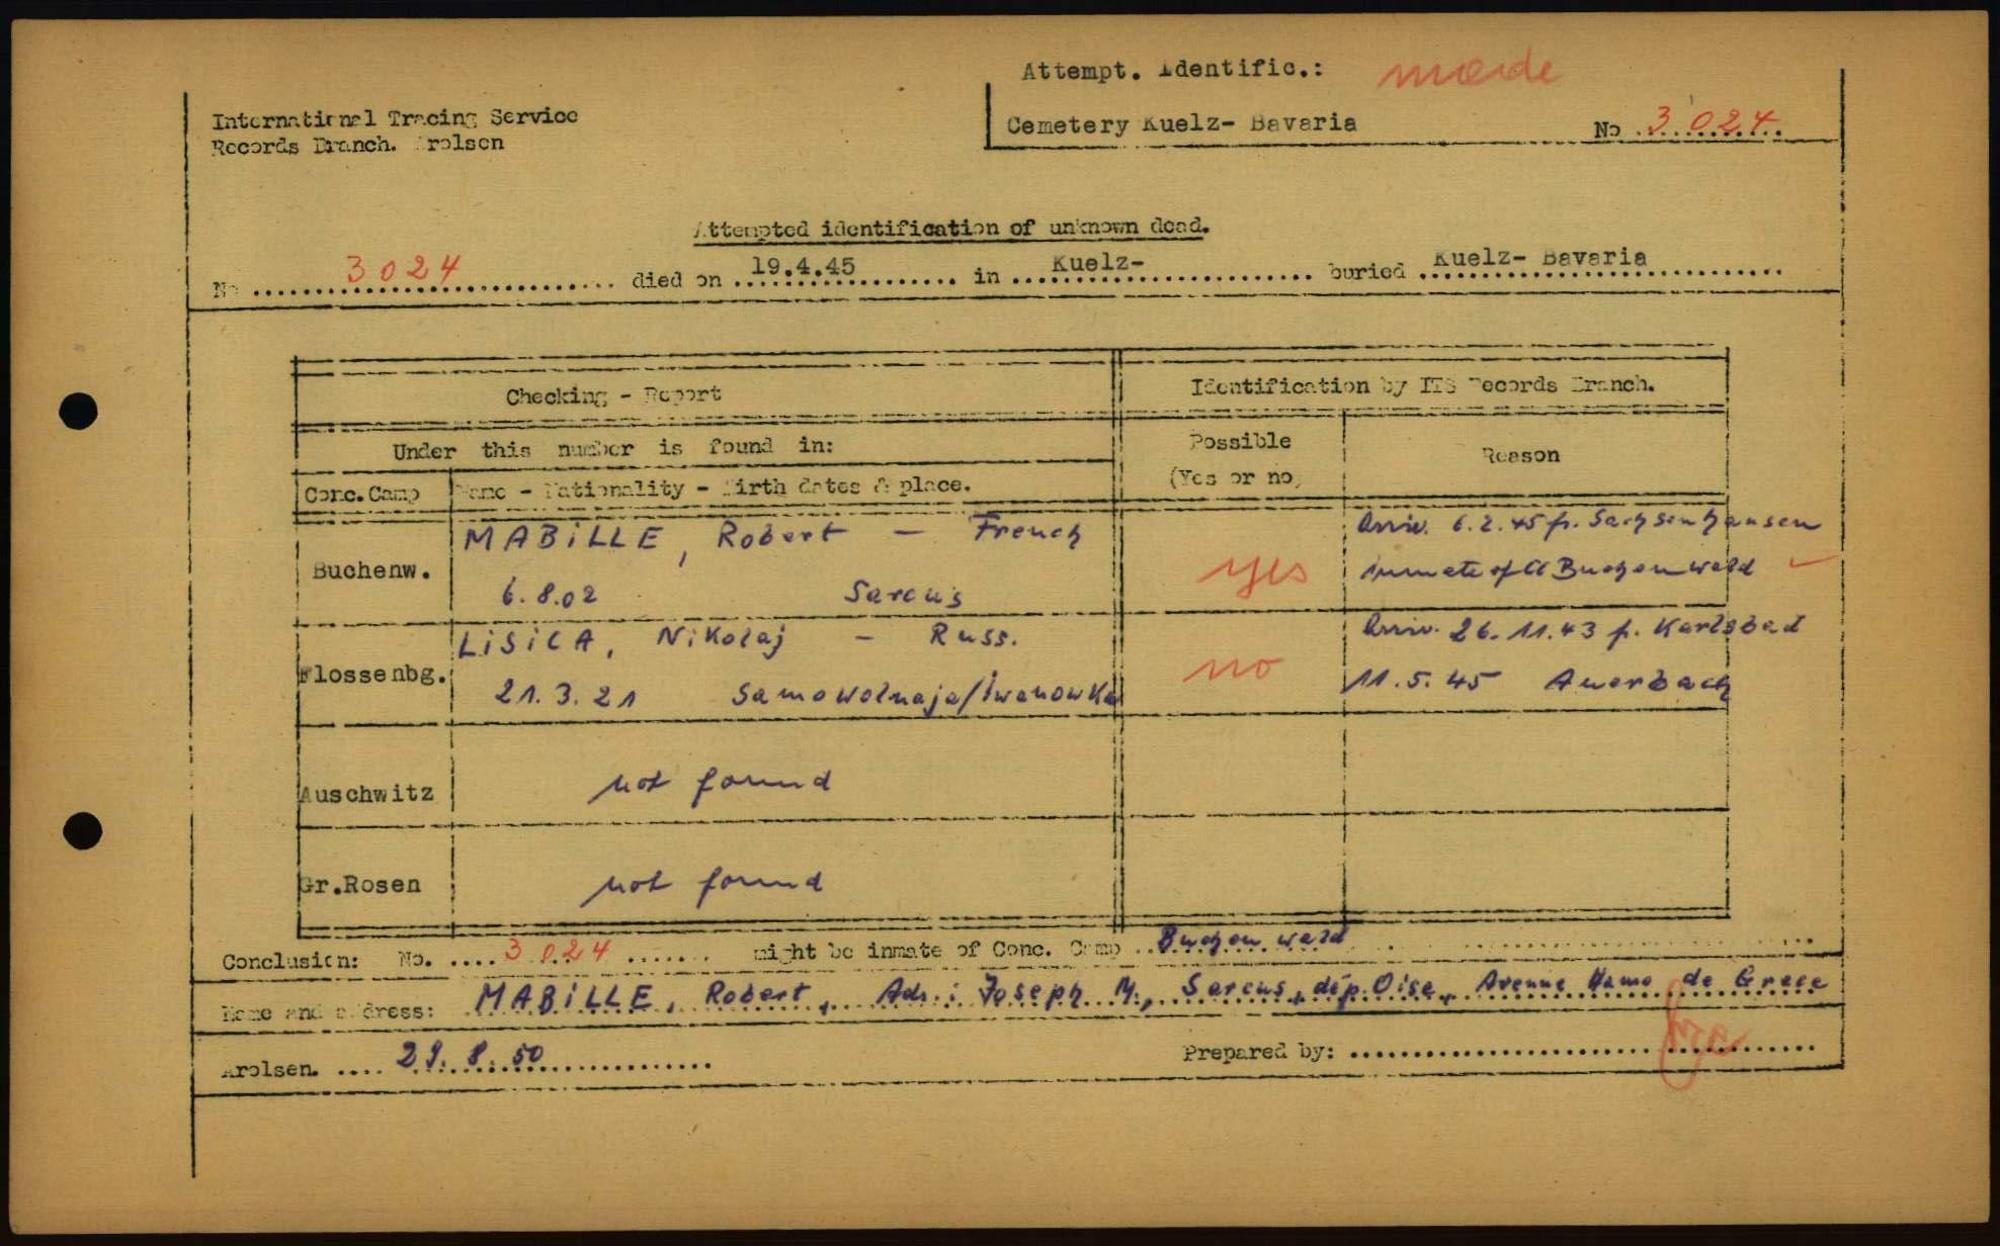 Attempt. Identific.: made
International Tracing Service
Records Branch. Arolsen
Cemetery Kuelz- Bavaria No 3024
Attempted identification of unknown dead.
No 3024 died on 19.4.45 in Kuelz- buried Kuelz- Bavaria
Checking - Report
Identification by ITS Records Branch.
Under this number is found in:
Possible
(Yes or no)
Reason
Conc. Camp Name - Nationality - Birth dates & place.
Buchenw.
MABiLLE, Robert - French
6.8.02 Sarcus
yes
Arriv. 6.2.45 fr. Sachsenhausen
inmate of CC Buchenwald
Flossenbg.
LiSiCA, Nikolaj - Russ.
21.3.21 Samowolnaja/Iwanowka
no
Arriv. 26.11.43 f. Karlsbad
11.5.45 Auerbach
Auschwitz not found
Gr.Rosen not found
Conclusion: No. 3024 might be inmate of Conc. Camp Buchenwald
Name and address: MABiLLE, Robert, Adr.: Joseph M., Sarcus, dép. Oise, Avenue de Grece
Arolsen. 29.8.50
Prepared by: